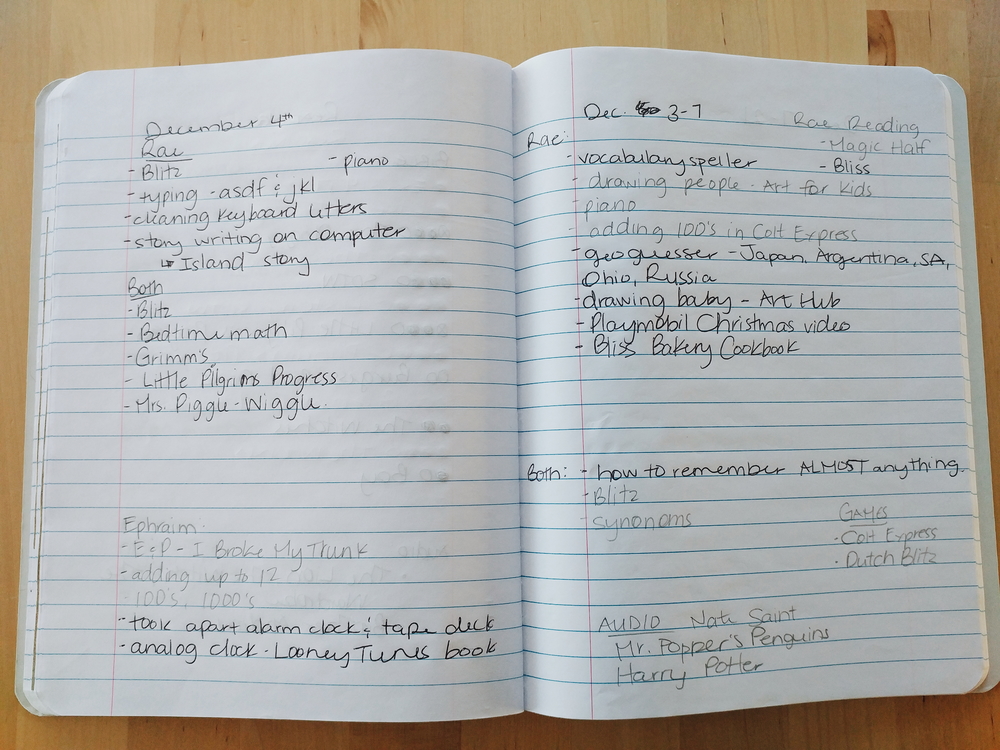 December 4th
Rae
- Blitz
- piano
- typing - asdf & jkl
- cleaning keyboard letters
- story writing on computer
↳ Island story
Both
- Blitz
- Bedtime math
- Grimm's
- Little Pilgrims Progress
- Mrs. Piggle-Wiggle
Ephraim
- E&P - I Broke My Trunk
- adding up to 12
- 100's, 1000's
- took apart alarm clock & tape deck
- analog clock - Looney Tunes book
Dec. 3-7
Rae:
- vocabulary speller
- drawing people - Art for Kids
- piano
- adding 100's in Colt Express
- geoguesser - Japan, Argentina, SA,
Ohio, Russia
- drawing baby - Art Hub
- Playmobil Christmas video
- Bliss Bakery Cookbook
Rae Reading
- Magic Half
- Bliss
Both: - how to remember ALMOST anything
- Blitz
- synonoms
GAMES
- Colt Express
- Dutch Blitz
AUDIO Nate Saint
Mr. Popper's Penguins
Harry Potter